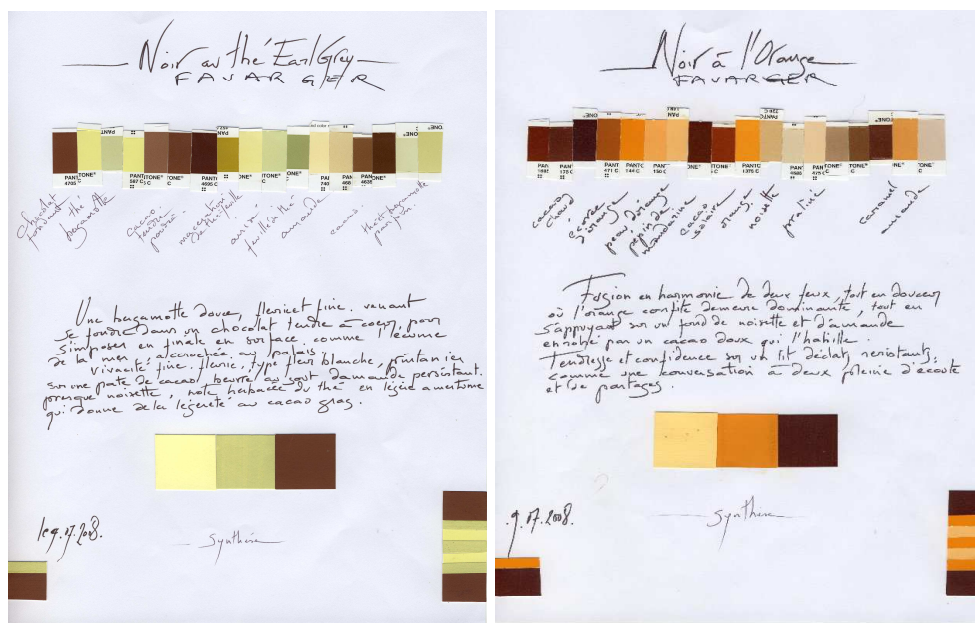 Noir au thé Earl Grey
FAVARGER
PANT
4705
TONE®
587 C
C
TONE®
C
PANTO
4695 C
PANT
740
468
4635
TONE®
Chocolat
fondant
thé
bergamotte
cacao
tendre
poudré
macération
de thé-feuille
anisé
feuille de thé
amande
cacao
thé et bergamotte
parfum
Une bergamotte douce, fleurie et fine. venant
se fondre dans un chocolat tendre à coeur, pour
s'imposer en finale en surface comme l'écume
de la mer, accrochée au palais.
Vivacité fine, fleurie, type fleur blanche, printanier
sur une pate de cacao beurre au gout d'amande persistant.
presque noisette, note herbacée du thé en légère amertume
qui donne de la légereté au cacao gras.
le 9.07.2008.
Synthèse
Noir à l'Orange
FAVARGER
PAN
1685
175 C
TONE®
471 C
PANTO
144 C
150 C
1375 C
4685
475 C
TONE®
cacao
chaud
écorce
d'orange
peau d'orange
pépin de
mandarine
cacao
solaire
orange
noisette
praliné
caramel
amande
Fusion en harmonie de deux feux, tout en douceur
où l'orange confite demeure dominante, tout en
s'appuyant sur un fond de noisette et d'amande
enrobé par un cacao doux qui l'habille.
Tendresse et confidence sur un lit d'éclats résistants,
comme une conversation à deux pleine d'écoute
et de partages.
9.07.2008.
Synthèse